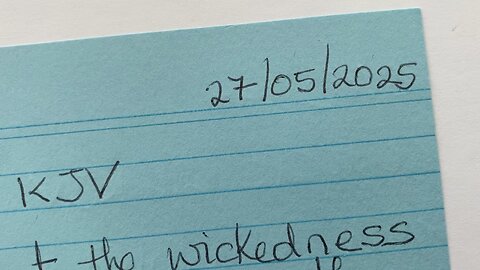 27/05/2025
KJV
the wickedness